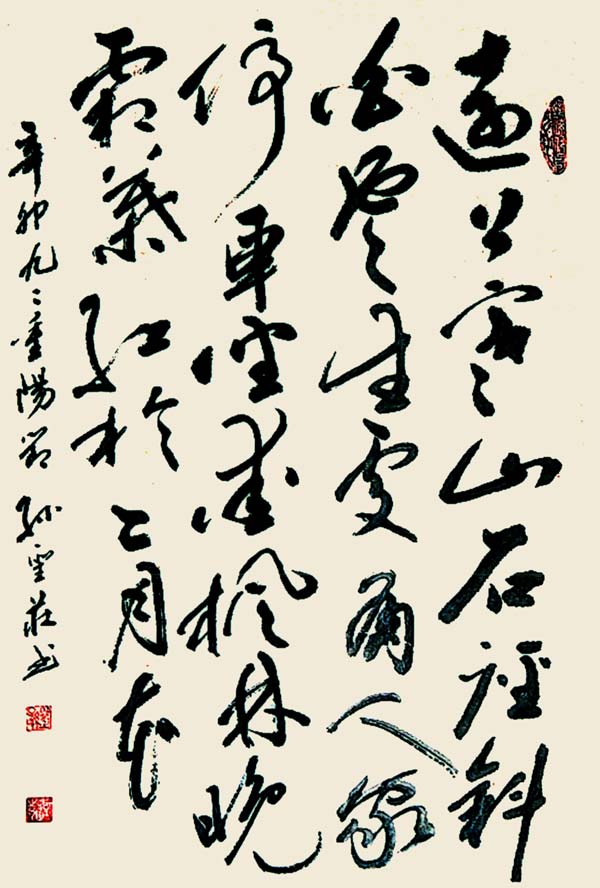 遠上寒山石徑斜
白雲生處有人家
停車坐愛楓林晚
霜葉紅於二月花
辛卯九〻重陽節 孫 莊書